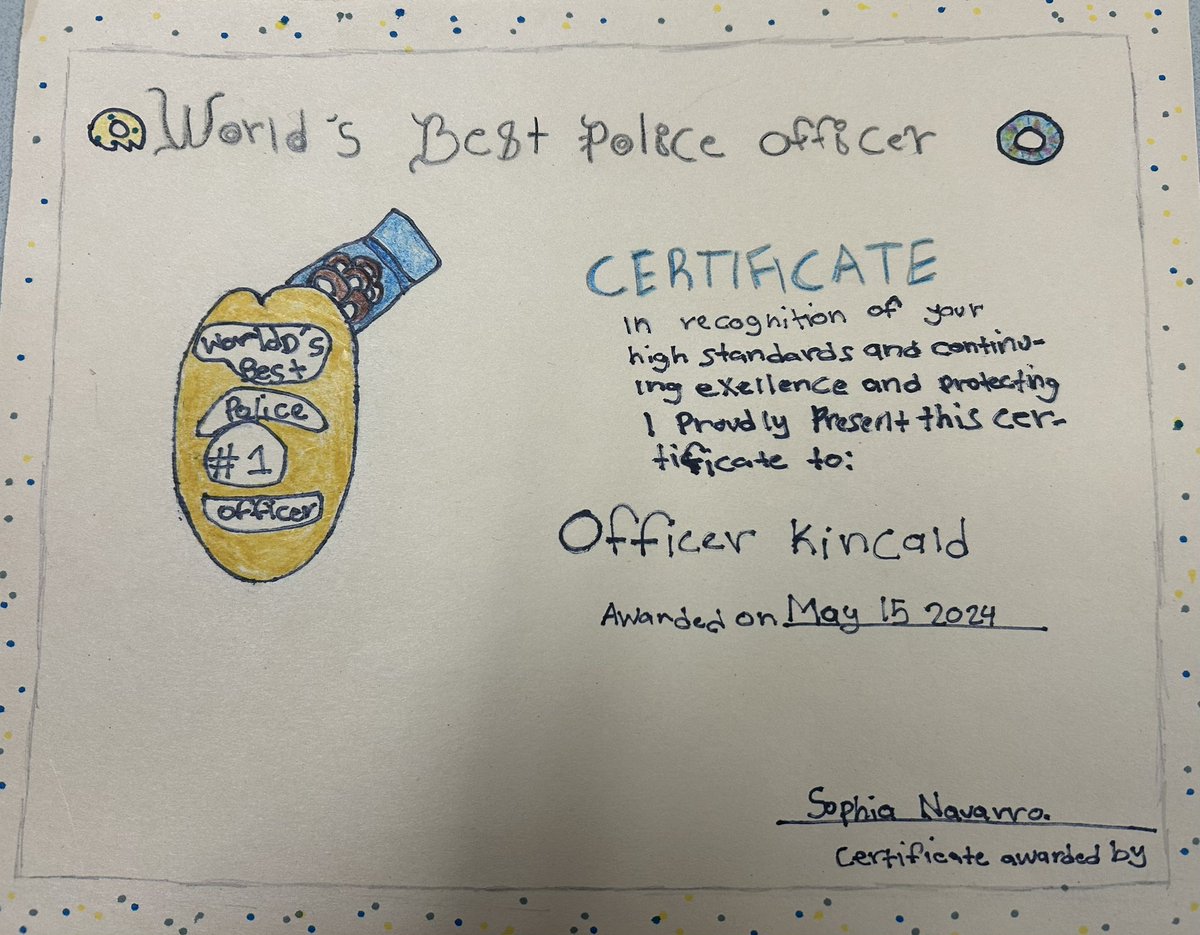 World's Best Police Officer
WorldD's
Best
Police
#1
officer
CERTIFICATE
In recognition of your
high standards and continu-
ing exellence and protecting
I Proudly Present this cer-
tificate to:
Officer Kincaid
Awarded on May 15 2024
Sophia Navarro.
Certificate awarded by